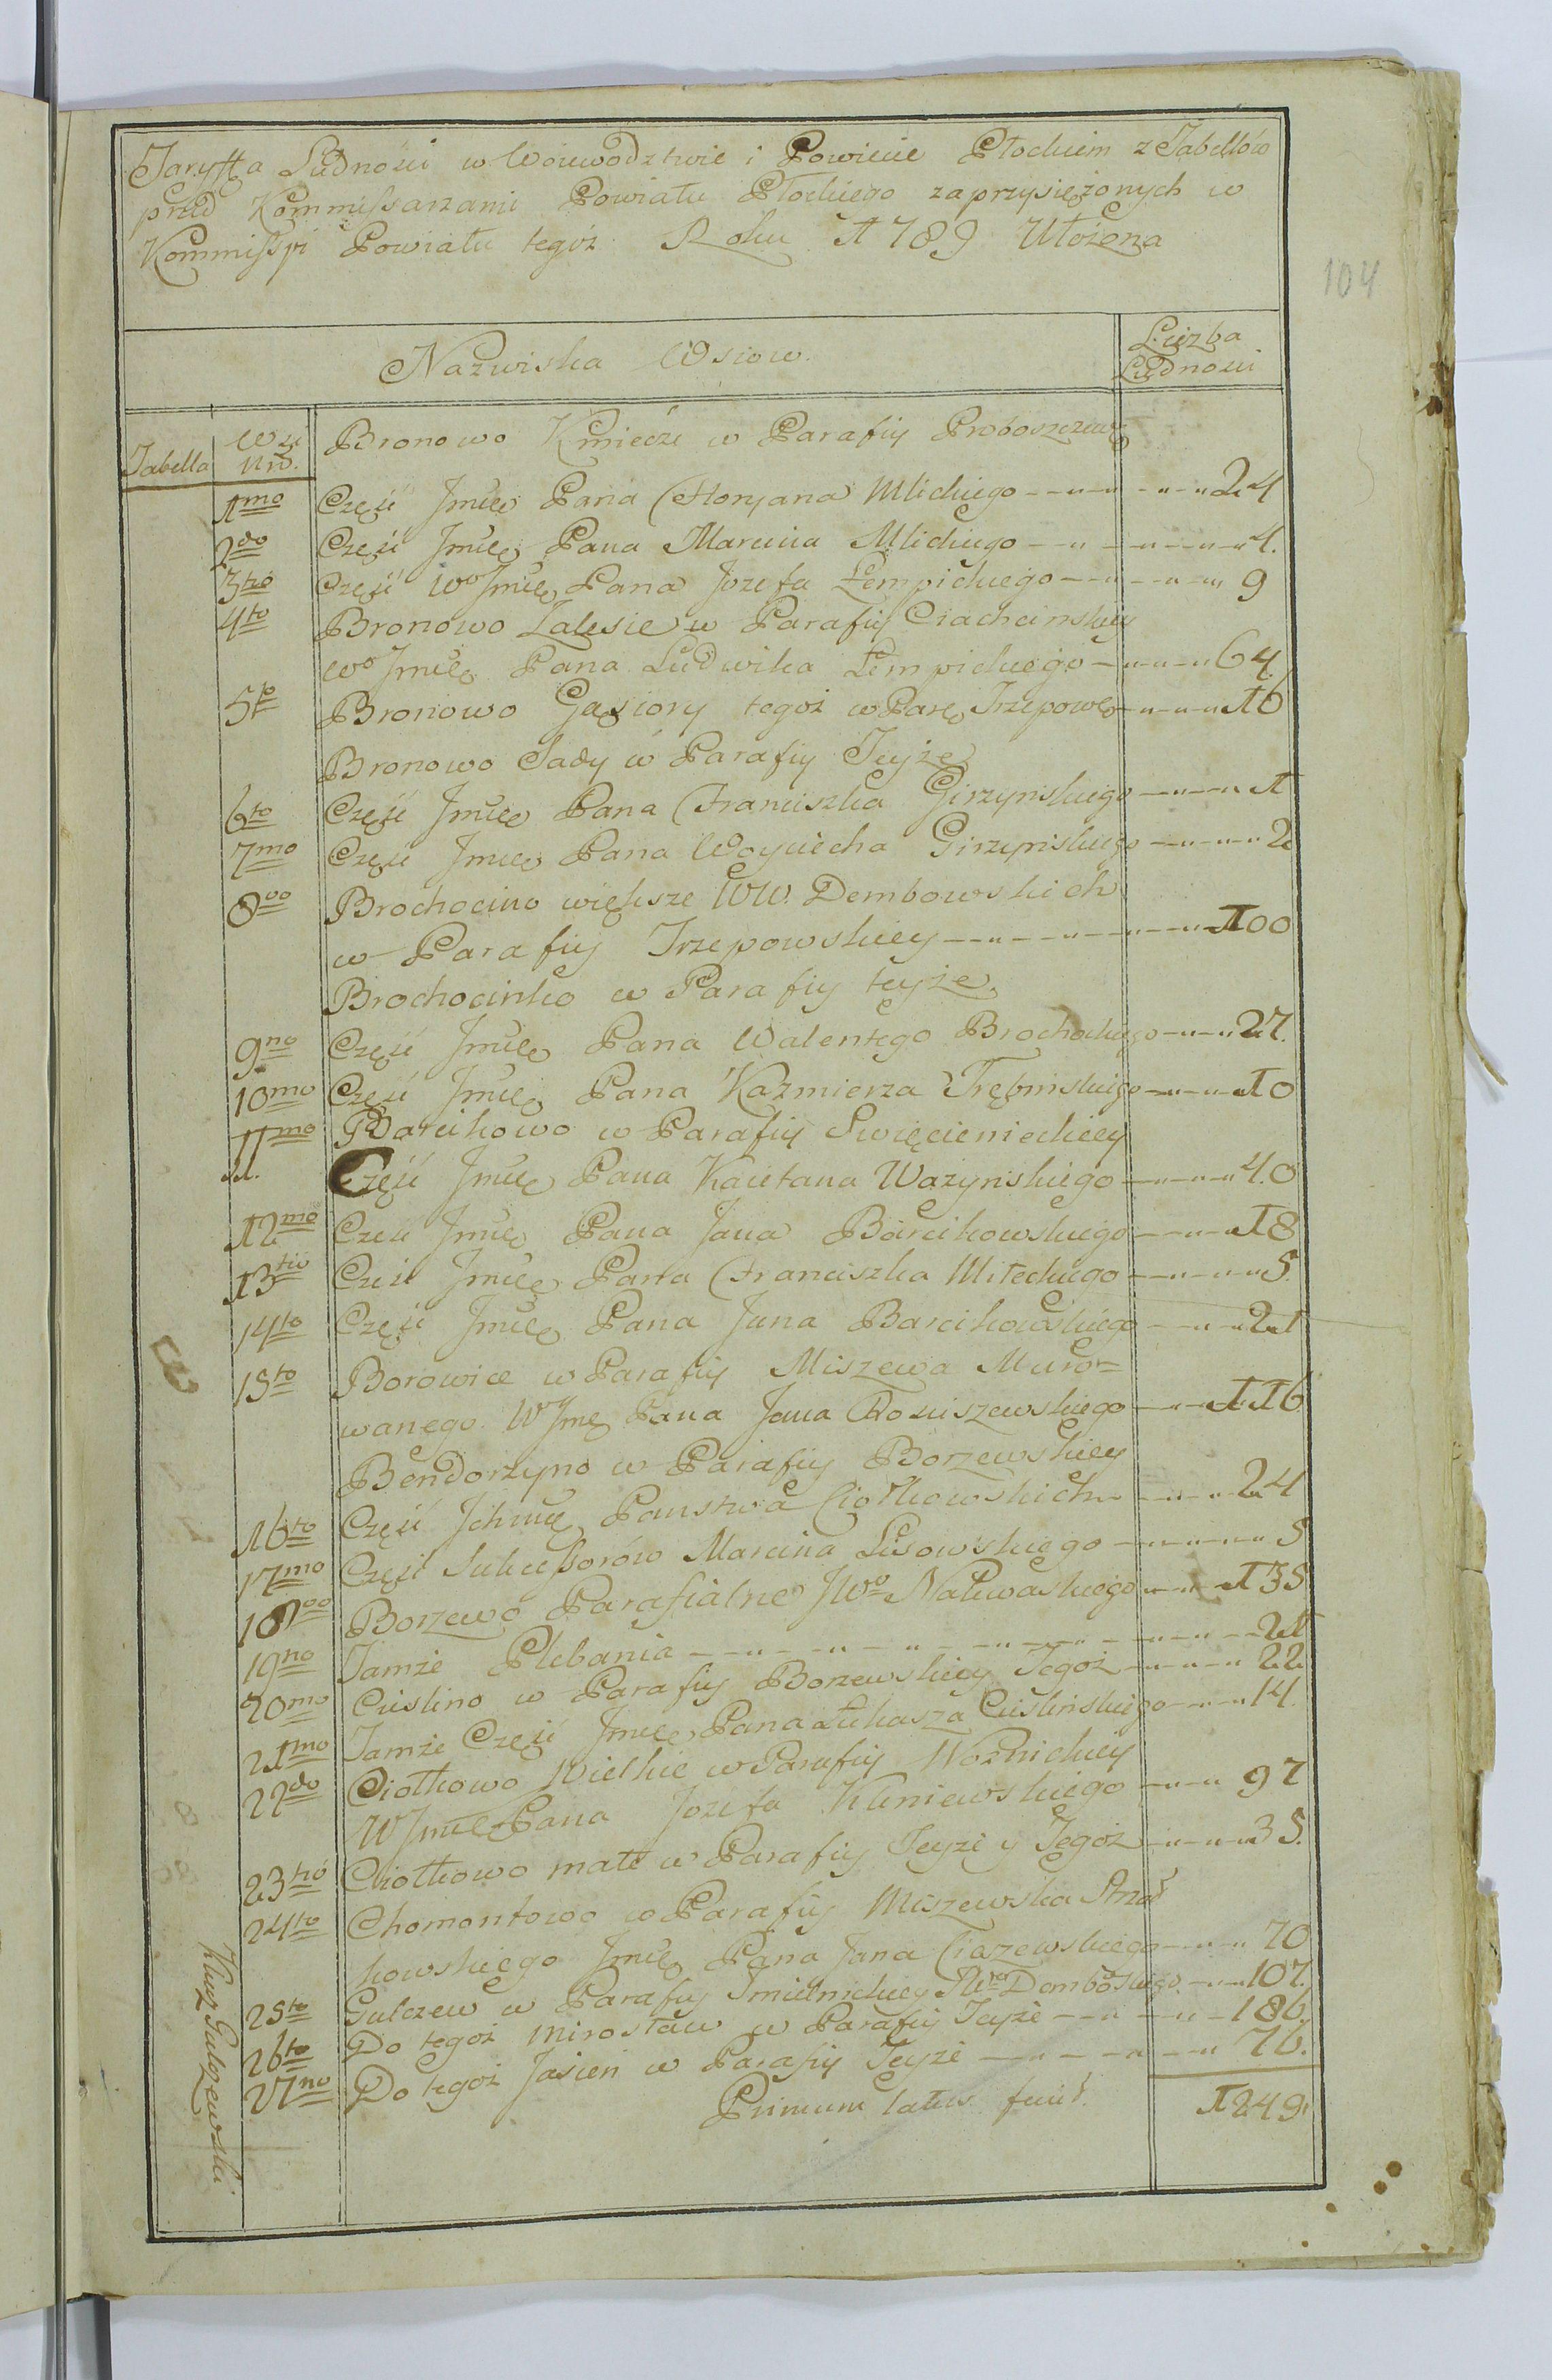 Taryffa Ludności w Woiewodztwie i Powiecie Płockiem z Tabellów
przed Kommissarzami Powiatu Płockiego zaprzysiężonych w
Kommissyi Powiatu tegóż Roku 1789 Ułożona
104
Nazwiska Wsiow.
Liczba
Ludności
Tabella
Nro.
Bronowo Kmiecze w Parafiy
1mo Część Jmćę Pana Floryana Mlickiego 24
2do Część Jmćę Pana Marcina Mlickiego 4.
3tio Część Wo Jmćę Pana Jozefa Łempickiego 9
4to Bronowo Zalesie w Parafiy Ciachcinskiey
Wo Jmćę Pana Ludwika Łempickiego 64
5to Bronowo Gąsiory tegoż w Parę Trzepowę 16
Bronowo Sady w Parafiy Teyże
6to Część Jmćę Pana Franciszka Girzynskiego 1
7mo Część Jmćę Pana Woyciecha Girzynskiego 2
8vo Brochocino większe WW. Dembowskich
w Parafiy Trzepowskiey 100
Brochocinko w Parafiy teyże
9no Część Jmćę Pana Walentego Brochockiego 27.
10mo Część Jmćę Pana Kazmierza Trębinskiego 10
11mo Barcikowo w Parafiy Swięcienieckiey
11. Część Jmćę Pana Kaietana Ważynskiego 40
12mo Część Jmćę Pana Jana Barcikowskiego 18
13tio Część Jmćę Pana Franciszka Miłeckiego 5.
14to Część Jmćę Pana Jana Barcikowskiego 21
15to Borowice w Parafiy Miszewa Muro=
wanego W Jmę Pana Jana 116
Bendorzyno w Parafiy Borzewskiey
16to Część Jchmć Panstwa Ciołkowskich 24
17mo Część Sukcessorów Marcina Lisowskiego 5
18vo Borzewo Parafialne JWo Nakwaskiego 135
19no Tamże Plebania 21
20mo Cieslino w Parafiy Borzewskiey Tegoż 22
21mo Tamże Część Jmćę Pana Łukasza Cieslinskiego 14.
22do Ciołkowo Wielkie w Parafiy Woźnickiey
W Jmćę Pana Jozefa Kleniewskiego 97
23tio Ciołkowo małe w Parafiy Teyże y Tegoż 35.
24to Chomontowo w Parafiy Miszewska Strzał
kowskiego Jmćę Pana Jana Ciszewskiego 70
25to Gulczew w Parafiy Imielnickiey Dembowskiego 107.
26to Do tegoż Mirosław w Parafiy Teyże 186.
27mo Do tegoż Jasień w Parafiy Teyże 76.
Klucz Gulczewski
Primum latus facit. 1249.